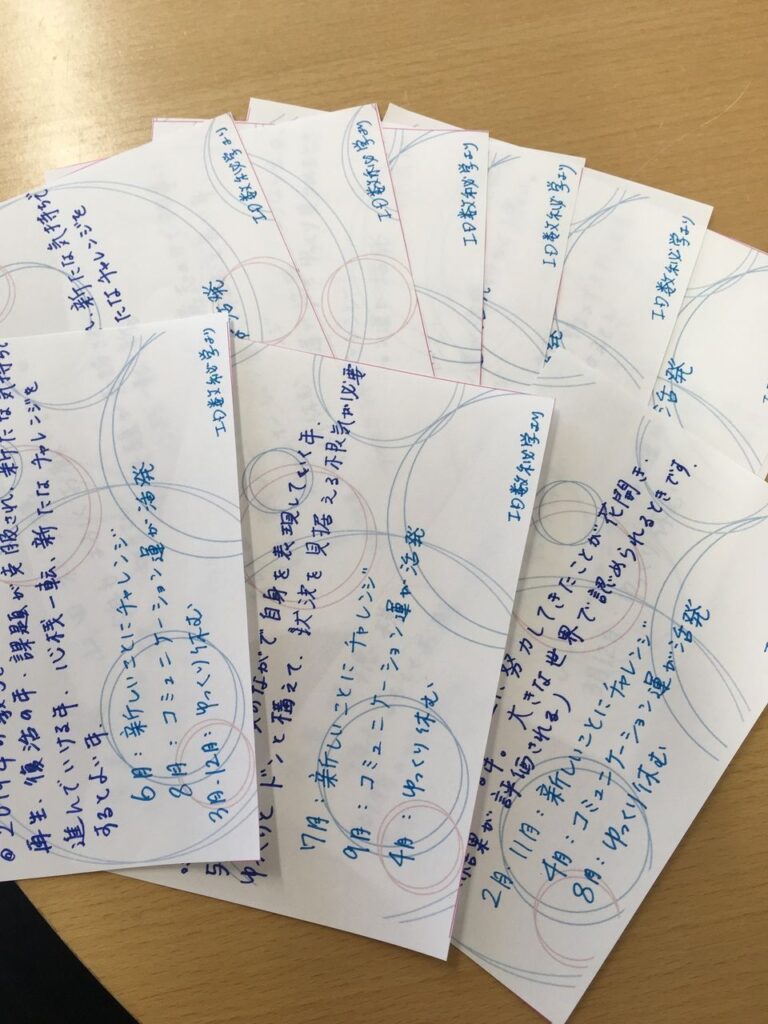 、新たな気持ちで
たなチャレンジを
発
ID数秘学より
ID数秘学より
ID数秘学より
ID数秘学より
発
ID数秘学より
活発
2019年の
再生、復活の年。課題が克服され、新たな気持ちで
進んでいける年。心機一転、新たなチャレンジを
するとよい年
6月:新しいことにチャレンジ
8月:コミュニケーション運が活発
3月12月:ゆっくり休む
ID数秘学より
のなかで自身を表現していく年。
ゆっくりと ドンと構えて、状況を見据える根気が必要
7月:新しいことにチャレンジ
9月:コミュニケーション運が活発
4月:ゆっくり休む
ID数秘学より
、努力してきたことが花開き、
年。大きな世界で認められるときです。
結果が評価される)
2月 11月:新しいことにチャレンジ
4月:コミュニケーション運が活発
8月:ゆっくり休む